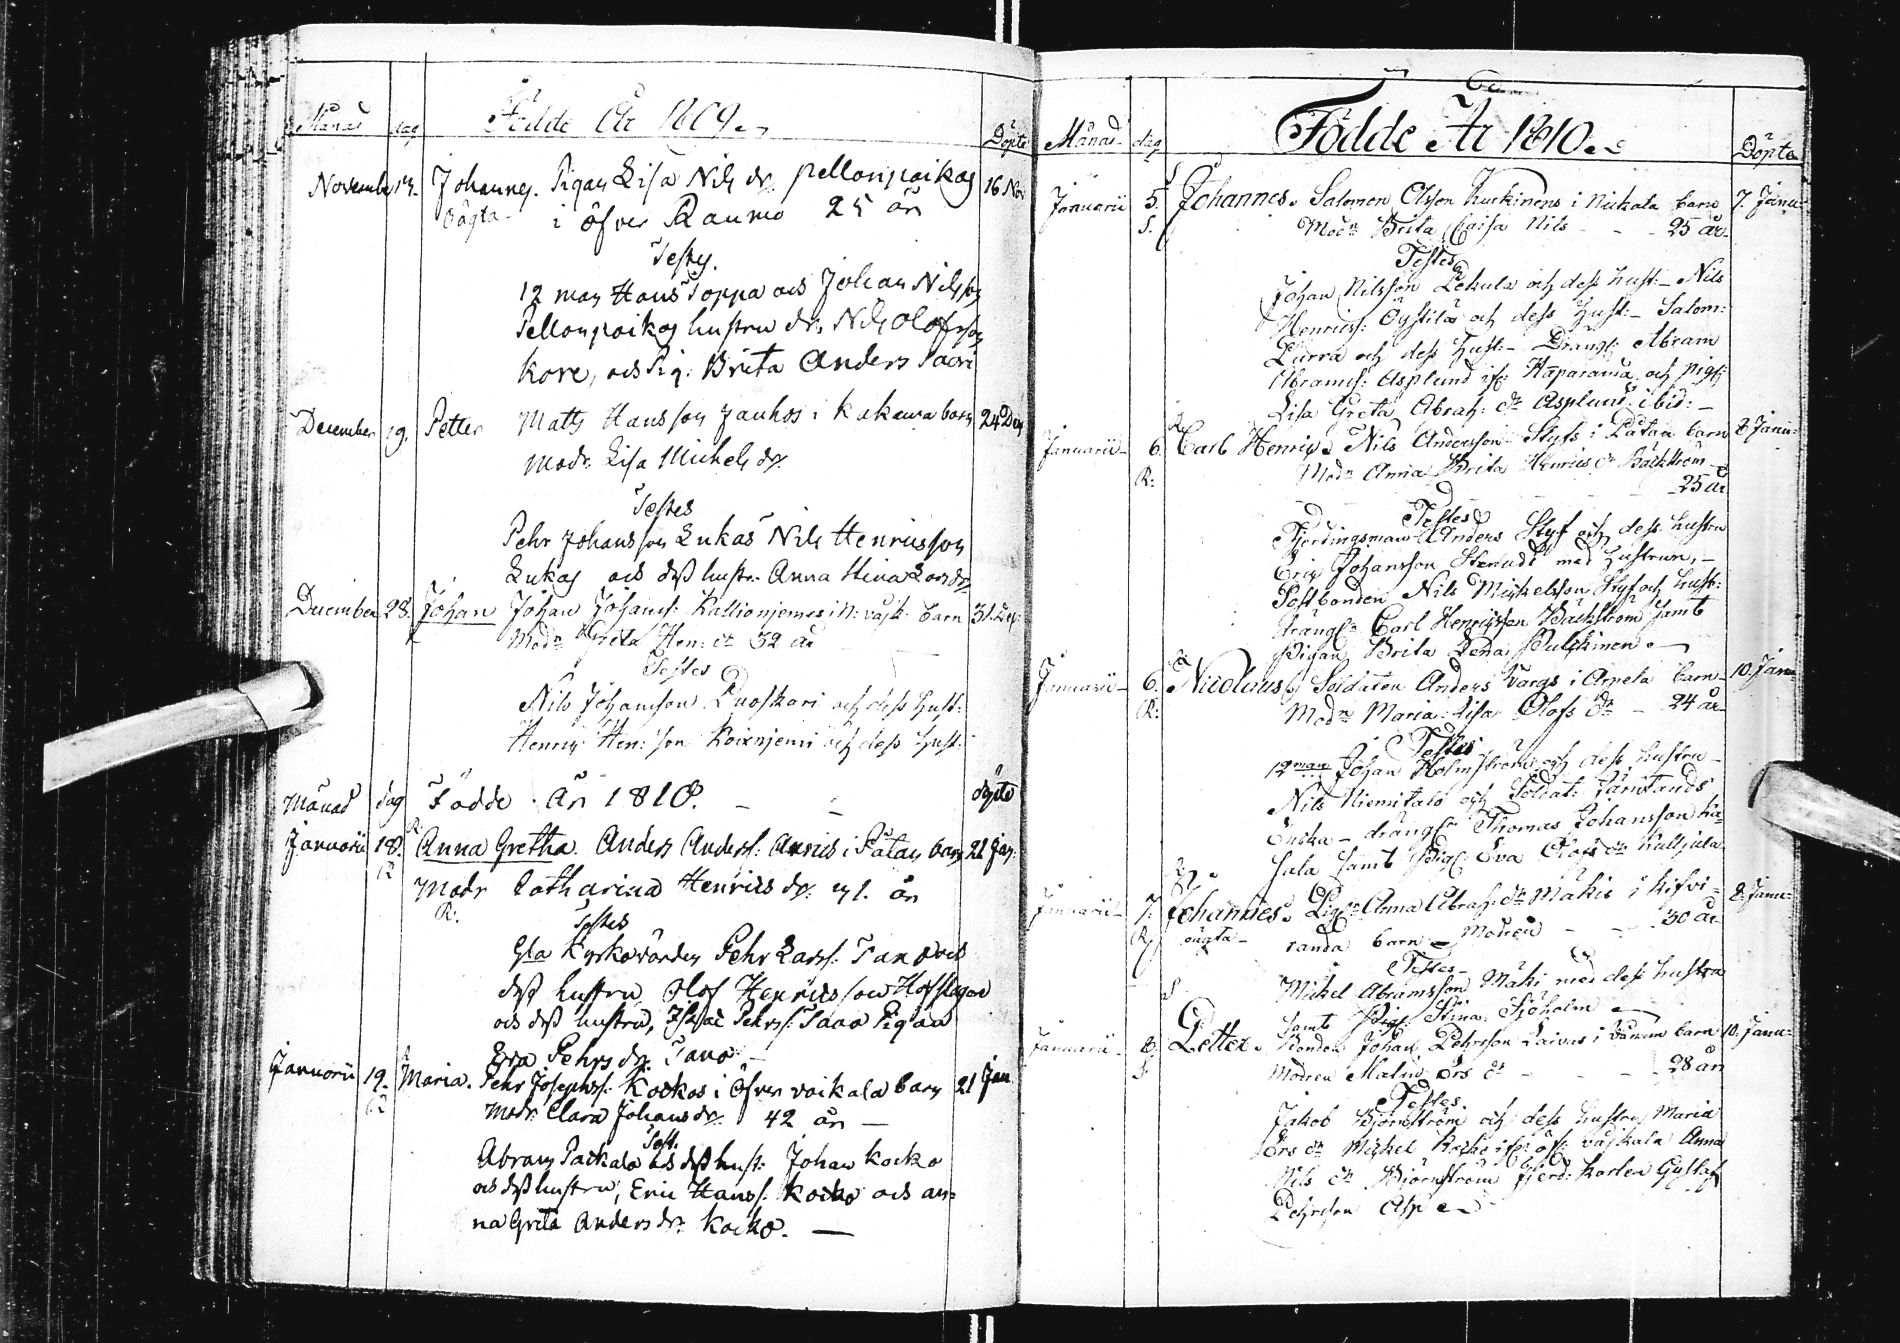 Månad dag Födde År 1809. Döpte
November 14. Johannes. Pigan Lisa Nils dr. Pellonpoikas 16 Nov
Oägta i Öfver Raumo 25 år
Testes.
12 man Hans Poppa och Johan Nilsson
Pellonpoikas hustru dr. Nils Olofsson
Kore, och Pig. Brita Anders Paori
December 19. Petter Matts Hansson Jauhos i Kakama barn 24 Dec
Modr. Lisa Michels dr.
Testes
Pehr Johansson Lukas Nils Henricsson
Lukas och dess hustr. Anna Stina Lars dr.
December 28. Johan Johan Johanss: Kallionjemes i N: vojk: barn 31. Dec:
Modr. Greta Hen: dr 32 år
Testes
Nils Johansson Luoskari och dess Hust:
Henric Hen: son Koivnjemi och dess Hust:
Månad dag Födde År 1810. döpte
Januarii 18. Anna Gretha. Anders Anderss: Annis i Påtan barn 21 Jan.
R
Modr Catharina Henrics dr. 41. år
R.
Testes
Gla Kyrkovärden Pehr Larss: Tano och
dess hustru, Olof Henricsson Hofslagare
och dess hustru, Isaac Pehrss: Tano Pigan
Eva Pehrs dr. Tano. —
Januarii 19. Maria. Pehr Josephss: Kockos i Öfver voikala barn 21 Jan
Modr: Clara Johans dr. 42 år —
Test.
Abram Packala och dess hust: Johan Kocko
och dess hustru, Eric Hanss: Kocko och an=
na Greta Anders dr. Kocko. —
Månad dag Födde År 1810. Döpte
Januarii 5. Johannes. Salomon Olsson Kurkinens i Nickala barn 7. Janu:
S. Modr Brita Caisa Nils - - - 25 år.
Testes
Johan Nilsson Lekula och dess hust: — Nils
Henricss: Öystilä och dess Hust: — Salom:
Purra och dess Hust: — Drängs: Abram
Abramss: Asplund ifr: Haparanda, och pigs:
Lisa Greta Abrah: dr Asplund: ibid: —
Januarii — 6. Carl Henric. Nils Andersson Styfs i Påtan barn 8 Janu:
R: Modr Anna Brita Henrics dr Bäckström
25 år
Testes
Fjerdingsman Anders Styf och dess hustru
Eric Johansson med Hustrun, —
Postbonden Nils Mickelsson Styf och hustr:
drängs: Carl Henricsson Bäckström samt
Pigan Brita Lena Pulkkinen. —
Januarii — 6. Nicolaus. Soldaten Anders Vargs i Arpela barn 10. Janu:
R: Modr Maria Lisa Olofs dr — 24 år
Testes
12 man Johan Holmström och dess hustru —
Nils Niemitalo och Soldat: Järnstands
Enska — drängs: Thomas Johansson
samt Pigs: Eva Olofs dr
Januarii — 7. Johannes. Pigs: Anna Abrah: dr Mäkis i Kifvi= 8. Janu:
R oägta — randa barn — Modren - - - 30 år
Testes —
S Mickel Abramsson Mäki med dess hustru
samt Pigs: Stina Sjöholm —
Januarii — 8. Petter. Bonden Johan Pehrsson Laivas i barn 10. Janu:
S. Modren Malin Ers dr - - - 28 år
Testes
Jakob Björnström och dess hustru Maria
Ers dr Mickel Kocko ifr: öf: vojkala Anna
Nils dr Björnström fjerd: karlen Gustaf
Pehrsson Asp